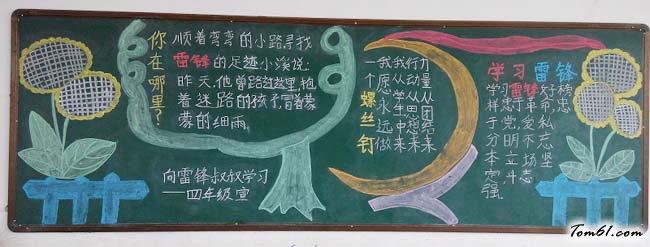 你在哪里?
顺着弯弯的小路寻找
雷锋的足迹小溪说:
昨天,他曾路过这里,抱
着迷路的孩子冒着蒙
蒙的细雨。
向雷锋叔叔学习
——四年级宣
力量从团结来
行动从思想来
我从学生中来
我愿永远做
一个螺丝钉
学习雷锋
学习雷锋好榜
样忠于革忠
于党爱私
分明不忘
本立场坚
定斗志
强。
Tom61.com